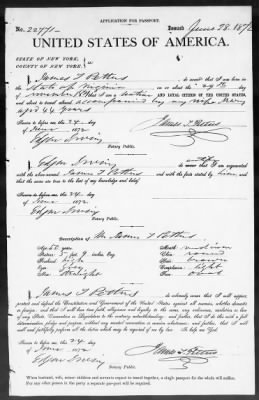 APPLICATION FOR PASSPORT.
No. 22771- Issued June 28. 1872
UNITED STATES OF AMERICA.
STATE OF NEW YORK,
COUNTY OF NEW YORK.
I, James T Pettus do swear that I was born in
the State of Virginia on the 29th day
of that I am a
AND LOYAL CITIZEN OF THE UNITED STATES,
and about to travel abroad accompanied by my wife Mary
aged 44 years
Sworn to before me this 24 day
of June 1872
Edgar Irving
Notary Public.
James T Pettus
I, Edgar Irving do swear that I am acquainted
with the above-named James T Pettus and with the facts stated by him, and
that the same are true to the best of my knowledge and belief.
Sworn to before me this 24 day
of June 1872
Edgar Irving
Notary Public.
Description of Mr James T Pettus
Age, years Mouth, medium
Stature, 5 feet 9 inches Eng. Chin, round
Forehead, high Hair,
Eyes, Grey Complexion, light
Nose, straight Face, oval
I, James T Pettus do solemnly swear that I will support,
protect and defend the Constitution and Government of the United States against all enemies, whether domestic
or foreign, and that I will bear true faith, allegiance and loyalty to the same, any ordinance, resolution or law
of any State Convention or Legislature to the contrary notwithstanding; and further, that I do this with a full
determination, pledge and purpose, without any mental reservation or evasion whatsoever; and further, that I will
well and faithfully perform all the duties which may be required of me by law. So help me God.
Sworn to before me this 24 day
of June 1872
Edgar Irving
Notary Public.
James T. Pettus
When husband, wife, minor children and servants expect to travel together, a single passport for the whole will suffice.
For any other person in the party a separate passport will be required.